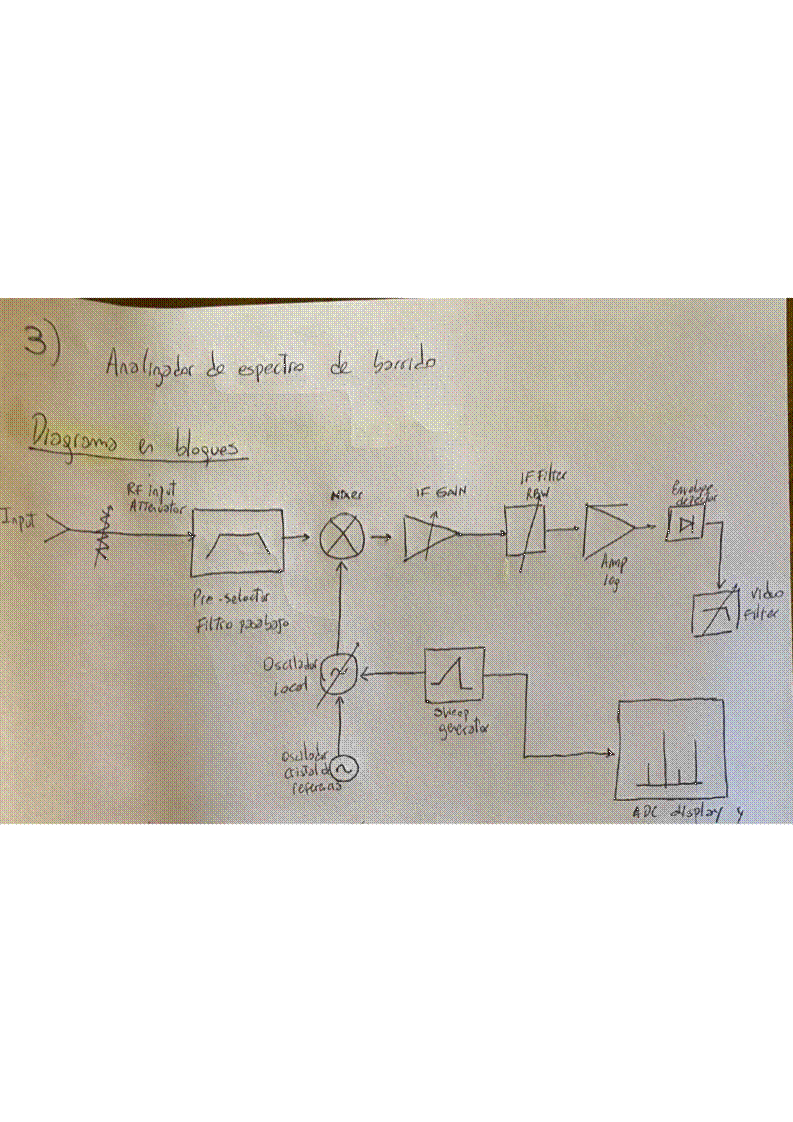 3)
Analizador de espectro de barrido
Diagrama en bloques
Input
RF input
Attenuator
Pre-selector
Filtro pasa bajo
Mixer
IF GAIN
IF Filter
RBW
Amp
log
Envelope
detector
video
Filter
Oscilador
Local
Sweep
generator
Oscilador
cristal de
referencia
ADC display y